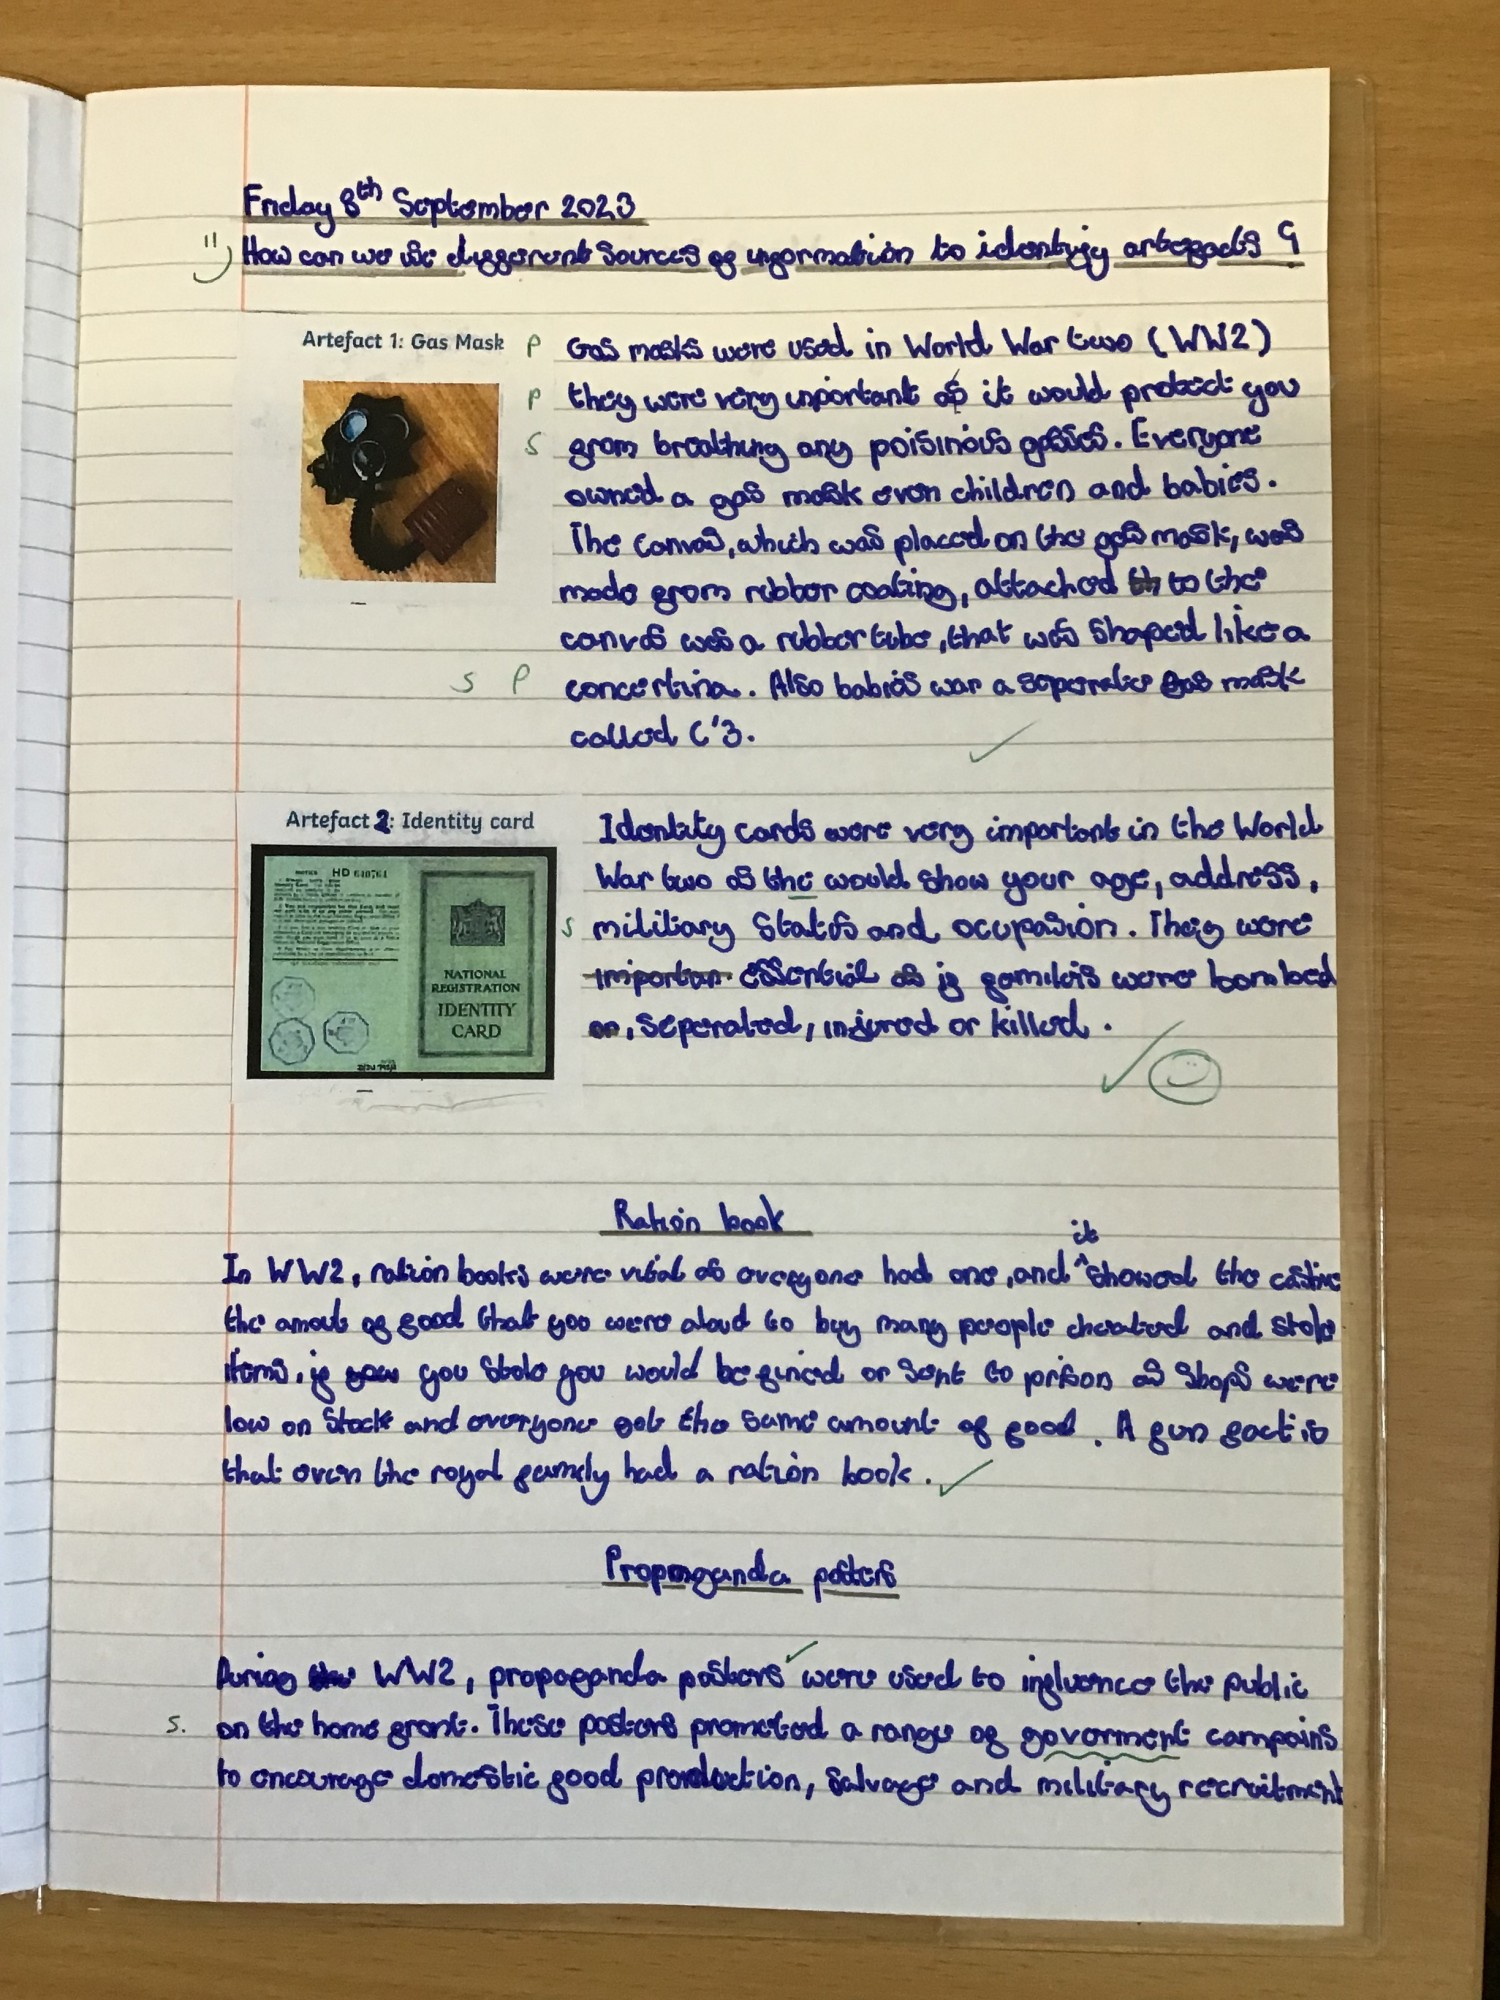 Friday 8th September 2023
How can we use different sources of information to identify artefacts ?
Artefact 1: Gas Mask
P Gas masks were used in World War two (WW2)
P they were very important as it would protect you
S from breathing any poisinous gasses. Everyone
owned a gas mask even children and babies.
The canvas, which was placed on the gas mask, was
made from rubber coating, attached to the
canvas was a rubber tube, that was shaped like a
S P concertina. Also babies war a seperate gas mask
called C'3.
Artefact 2: Identity card
HD 640761
NATIONAL
REGISTRATION
IDENTITY
CARD
Identity cards were very important in the World
War two as the would show your age, address,
S military status and ocupasion. They were
importan essential as if famileis were bombed
on, seperated, injured or killed.
Ration book
In WW2, ration books were vital as everyone had one, and it showed the
the amout of food that you were aloud to buy many people cheated and stole
items. if you you stole you would be fined or sent to prison as shops were
low on stock and everyone got the same amount of food. A fun fact is
that even the royal family had a ration book.
Propaganda posters
During the WW2, propaganda posters were used to influence the public
S. on the home front. These posters promoted a range of goverment campains
to encourage domestic food production, salvage and military recruitment